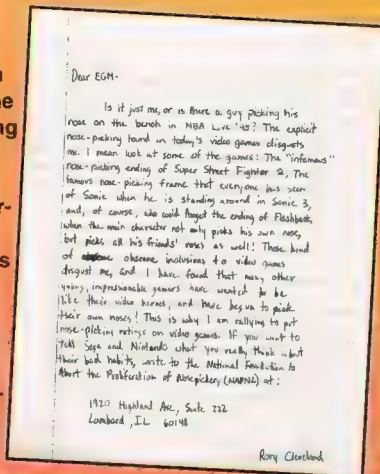 Dear EGM-
Is it just me, or is there a guy picking his
nose on the bench in NBA Live '95? The explicit
nose-picking found in today's video games disgusts
me. I mean look at some of the games: The "infamous"
nose-picking ending of Super Street Fighter 2, The
famous nose-picking frame that everyone has seen
of Sonic when he is standing around in Sonic 3,
and, of course, who could forget the ending of Flashback,
when the main character not only picks his own nose,
but picks all his friends' noses as well! These kind
of obscene inclusions to video games
disgust me, and I have found that many other
young, impressionable gamers have wanted to be
like their video heroes, and have begun to pick
their own noses! This is why I am rallying to put
nose-picking ratings on video games. If you want to
tell Sega and Nintendo what you really think about
their bad habits, write to the National Foundation to
Abort the Proliferation of Nosepickery at:
1920 Highland Ave, Suite 222
Lombard, IL 60148
Rory Cleveland